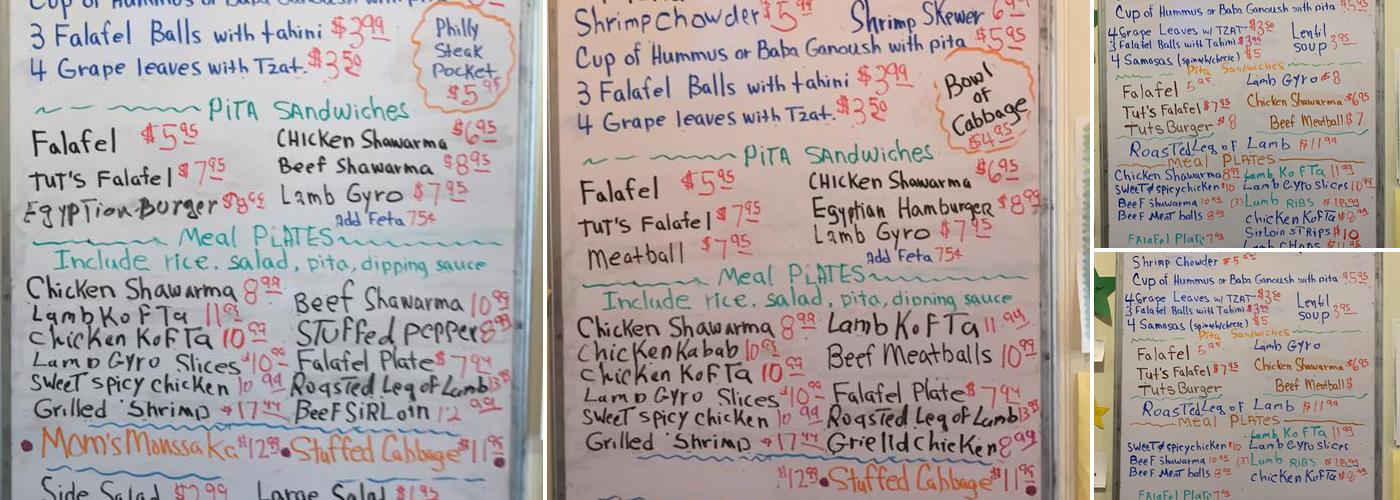 Cup of Hummus or Baba Ganoush with pita
3 Falafel Balls with tahini $3.99
4 Grape leaves with Tzat. $3.50
Philly
Steak
Pocket
$5.95
PiTA SAndwiches
Falafel $5.95
CHICKen Shawarma $6.95
TUT'S Falafel $7.95
Beef Shawarma $8.95
EgypTion Burger
Lamb Gyro $7.95
add Feta 75¢
Meal PLATES
Include rice. salad, pita, dipping sauce
Chicken Shawarma 8.99
Beef Shawarma 10.99
Lamb KoFTa
STuffed pepper
chicken KoFTa 10.99
Lamb Gyro Slices
Falafel Plate
SweeT spicy chicken 10.99
RoasTed Leg of Lamb
Grilled Shrimp
BeeF SiRLoin
Mom's Moussaka $12.99
Stuffed Cabbage $11.95
Side Salad $2.99
Large Salad
Shrimp chowder $5
Shrimp Skewer
Cup of Hummus or Baba Ganoush with pita $5.95
3 Falafel Balls with tahini $3.99
4 Grape leaves with Tzat. $3.50
Bowl
of
Cabbage
$4.95
PiTA SAndwiches
Falafel $5.95
CHICKen Shawarma $6.95
TUT'S Falafel $7.95
Egyptian Hamburger $8.99
Meatball $7.95
Lamb Gyro $7.95
add Feta 75¢
Meal PLATES
Include rice. salad, pita, dipping sauce
Chicken Shawarma 8.99
Lamb KoFTa 11.99
ChicKen Kabab 10.99
Beef Meatballs 10.99
chicken KoFTa 10.99
Lamb Gyro Slices
Falafel Plate
SweeT spicy chicken 10.99
RoasTed Leg of Lamb
Grilled Shrimp
Grielld chicKen 8.99
$12.99
Stuffed Cabbage $11.95
Cup of Hummus or Baba Ganoush with pita $5.95
4 Grape Leaves w/ TZAT $3.50
Lentil
soup 3.95
3 Falafel Balls with Tahini $3.99
4 Samosas (spinach/cheese) $5
Pita Sandwiches
Falafel 5.95
Lamb Gyro $8
Tut's Falafel $7.95
Chicken Shawarma $6.95
Tuts Burger $8
Beef Meatball $7
RoasTed Leg oF Lamb $11.99
Meal PLATES
Chicken Shawarma
Lamb KoFTa 11.99
SweeT & spicy chicken $10
Lamb Gyro Slices
BeeF Shawarma 10.99
(3) Lamb RiBS
BeeF MeaT balls 8.99
chicken KoFTa
SirLoin STrips $10
FALaFel PlaTe 7.99
Lamb CHOPS
Shrimp Chowder $5
Cup of Hummus or Baba Ganoush with pita $5.95
4 Grape Leaves w/ TZAT $3.50
Lentil
soup 3.95
3 Falafel Balls with Tahini $3.99
4 Samosas (spinach/cheese) $5
Pita Sandwiches
Falafel 5.95
Lamb Gyro
Tut's Falafel $7.95
Chicken Shawarma $6.95
Tuts Burger
Beef Meatball $
RoasTed Leg oF Lamb $11.99
Meal PLATES
Lamb KoFTa 11.99
SweeT & spicy chicken $10
Lamb Gyro Slices
BeeF Shawarma 10.99
(3) Lamb RiBS
BeeF MeaT balls 8.99
chicken KoFTa
FALaFel PlaTe 7.99